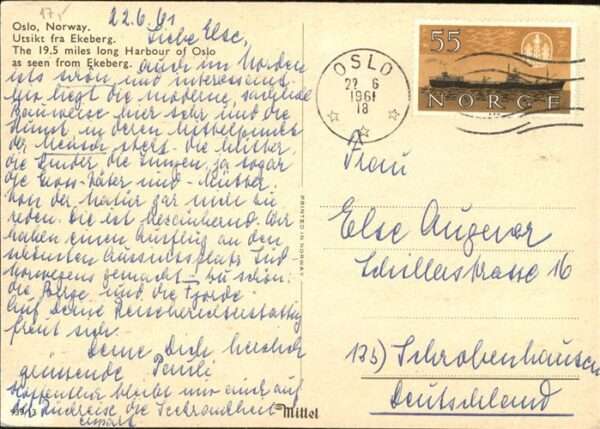 17,-
22.6.61
Oslo, Norway.
Utsikt fra Ekeberg.
The 19.5 miles long Harbour of Oslo
as seen from Ekeberg.
Liebe Else,
auch im Norden
ist's schön und interessant.
Mir liegt die moderne, sachliche
Bauweise hier sehr und die
Kunst, in deren Mittelpunkt
der Mensch steht - die Mütter,
die Kinder, die Jungen, ja sogar
die Gross-Väter und -Mütter.
Von der Natur gar nicht zu
reden. Sie ist bezaubernd. Wir
haben einen Ausflug an den
Aussichtsplatz Süd-
norwegens gemacht - zu schön:
die Berge und die Fjorde
Auf Deine Reiseberichterstattung
freut sich
Deine Dich herzlich
grüssende
Hoffentlich bleibt mir auch auf
der Rückreise die Seekrankheit
erspart.
Mittet
PRINTED IN NORWAY
OSLO
22 6
1961
18
55
NORGE
Frau
Else Augener
Schillerstrasse 16
(13b) Schrobenhausen
Deutschland